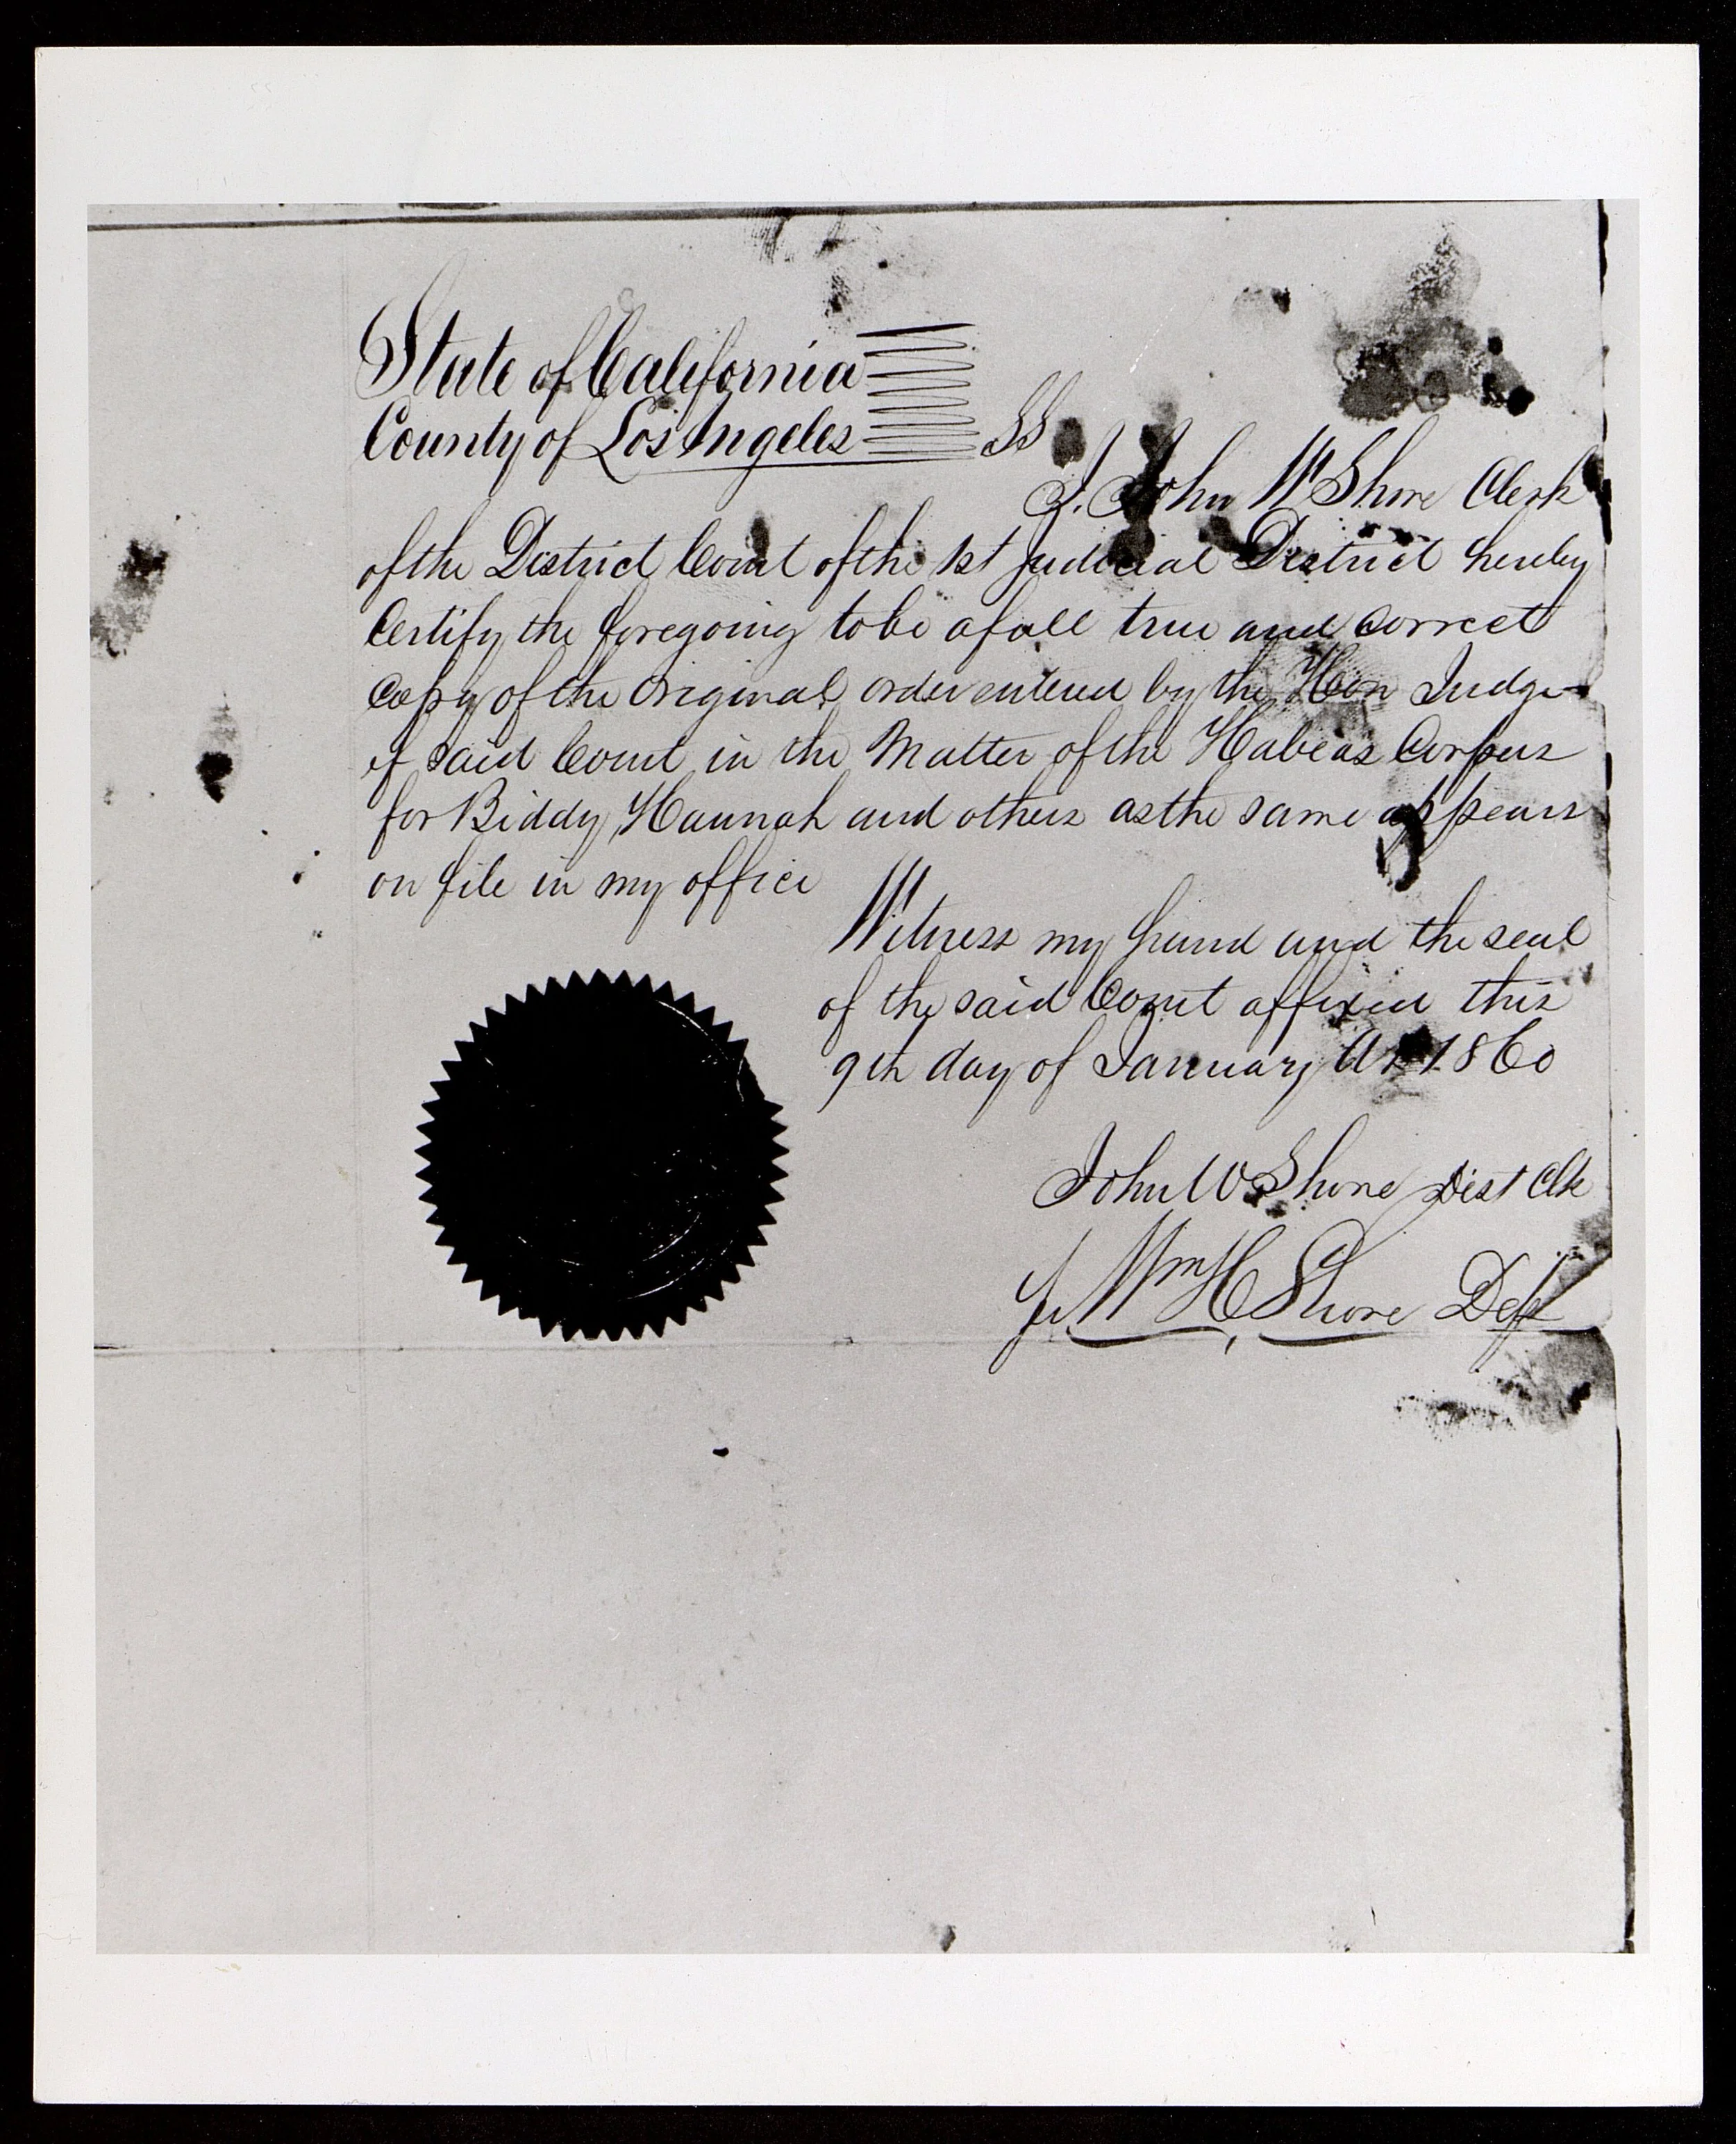 State of California
County of Los Angeles SS
I. John W Shore Clerk
of the District Court of the 1st Judicial District hereby
Certify the foregoing to be a full true and correct
Copy of the original order entered by the Hon Judge
of said Court in the Matter of the Habeas Corpus
for Biddy, Hannah and others as the same appears
on file in my office
Witness my hand and the seal
of the said Court affixed this
9th day of January AD 1860
John W Shore Dist Clk
Wm H Shore Dep